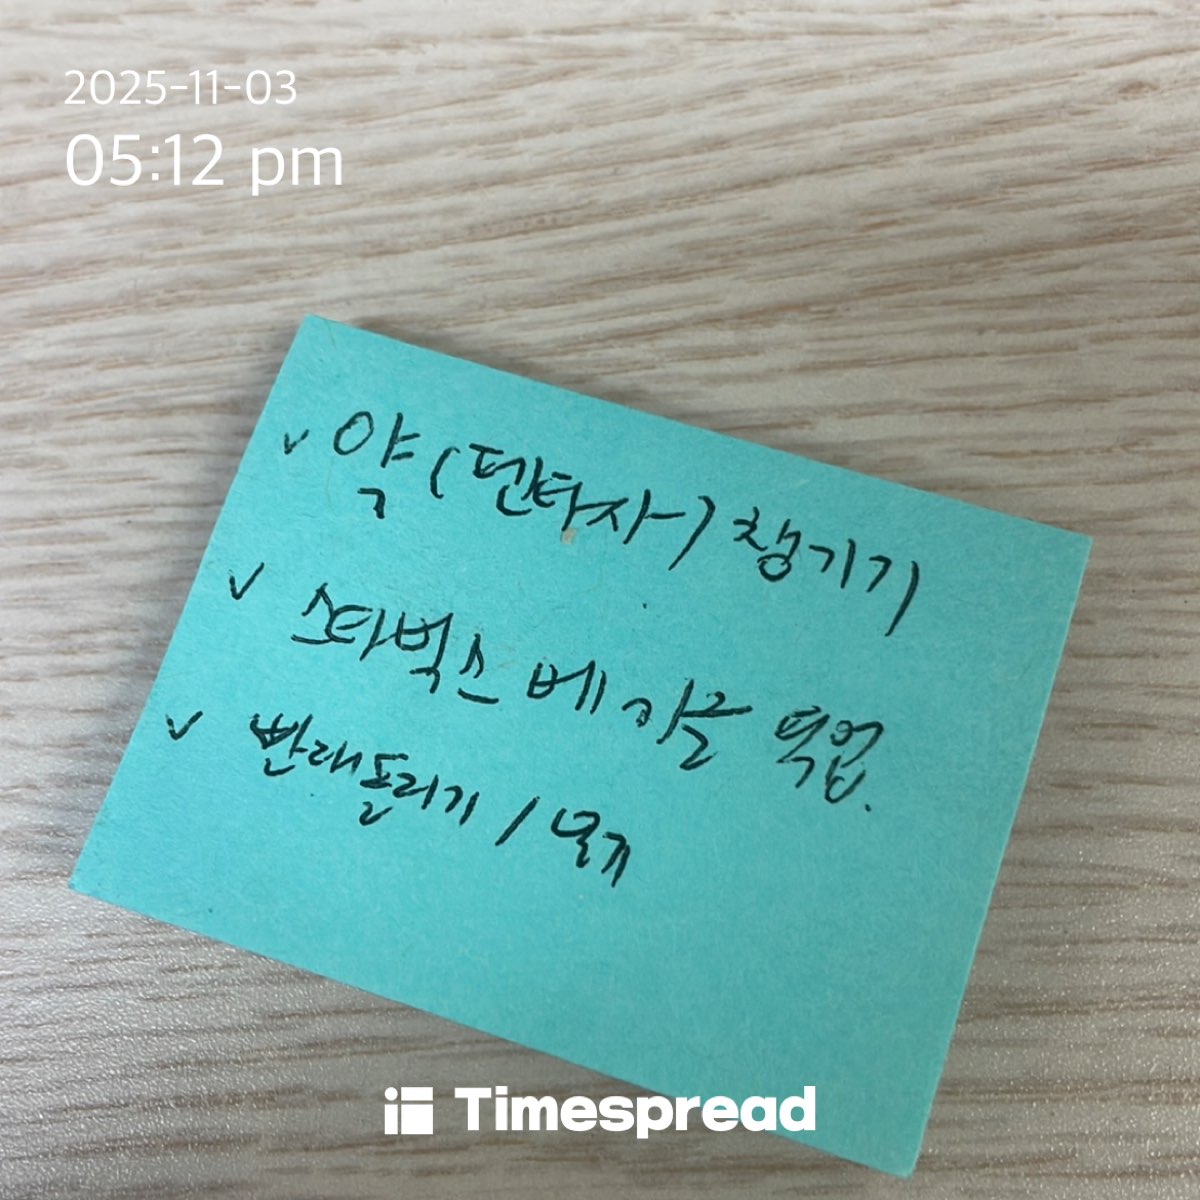 2025-11-03
05:12 pm
✓ 약(덴타자) 챙기기
✓ 스타벅스 베이글 픽업.
✓ 빨래돌리기 / 널기
Timespread